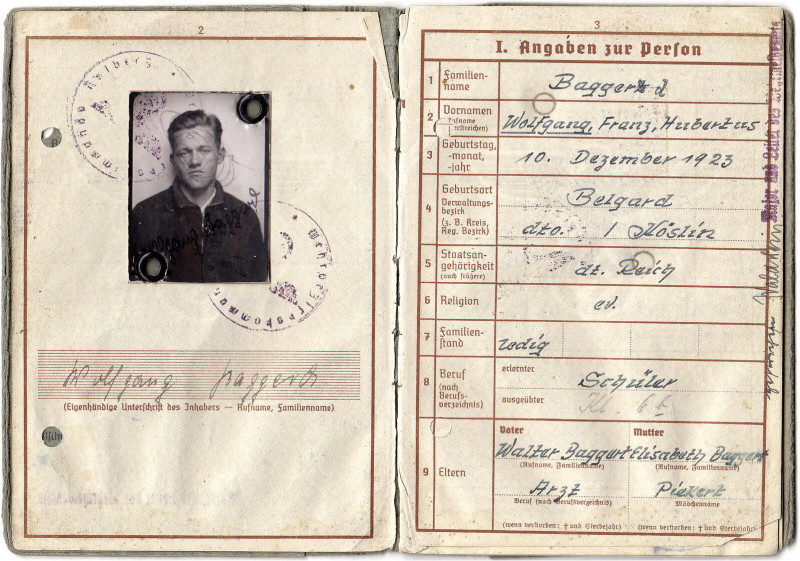 2
Wolfgang Baggerd
(Eigenhändige Unterschrift des Inhabers — Rufname, Familienname)
3
I. Angaben zur Person
1 Familienname Baggerd
2 Vornamen (Rufname unterstreichen) Wolfgang, Franz, Hubertus
3 Geburtstag, -monat, -jahr 10. Dezember 1923
4 Geburtsort Verwaltungsbezirk (z. B. Kreis, Reg. Bezirk) Belgard
dto. / Köslin
5 Staatsangehörigkeit (auch frühere) dt. Reich
6 Religion ev.
7 Familienstand ledig
8 Beruf (nach Berufsverzeichnis) erlernter Schüler
ausgeübter Kl. 6 b
9 Eltern
Vater Mutter
Walter Baggert Elisabeth Baggert
(Rufname, Familienname) (Rufname, Familienname)
Arzt Piekert
Beruf (nach Berufsverzeichnis) Mädchenname
(wenn verstorben: † und Sterbejahr) (wenn verstorben: † und Sterbejahr)
Major und Leiter des